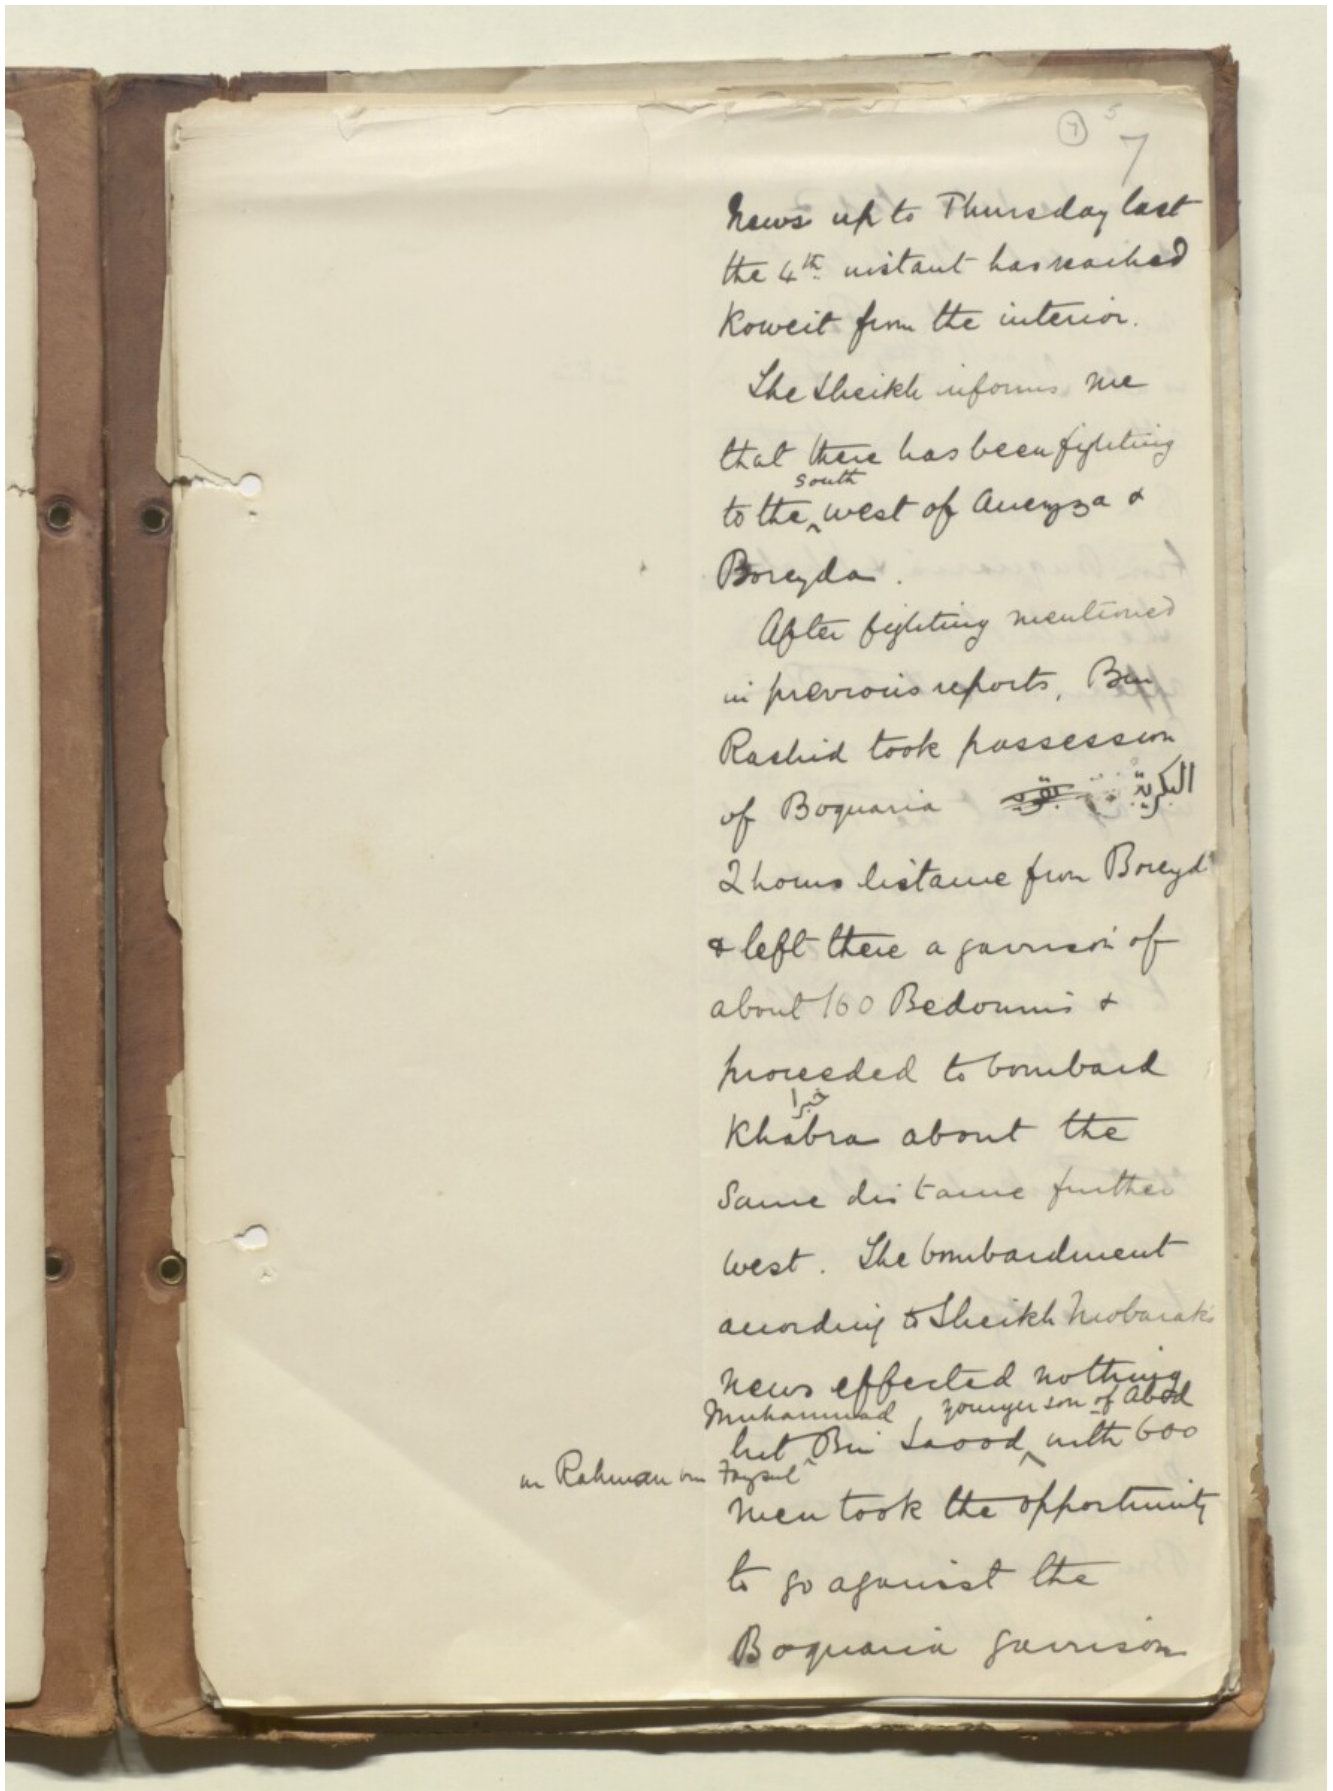 7 5
7
News up to Thursday last
the 4th instant has reached
Koweit from the interior.
The Sheikh informs me
that there has been fighting
south
to the ‸ west of Aneyza &
Boreyda.
After fighting mentioned
in previous reports, Bin
Rashid took possession
of Boquaria البكرية
2 hours distance from Boreyd
& left there a garrison of
about 160 Bedouins &
proceeded to bombard
خبرا
Khabra about the
same distance further
west. The bombardment
according to Sheikh Mobarak's
news effected nothing
Muhammad, younger son of Abd
but Bin Saood, with 600
ur Rahman bin Faysul
men took the opportunity
to go against the
Boquaria garrison